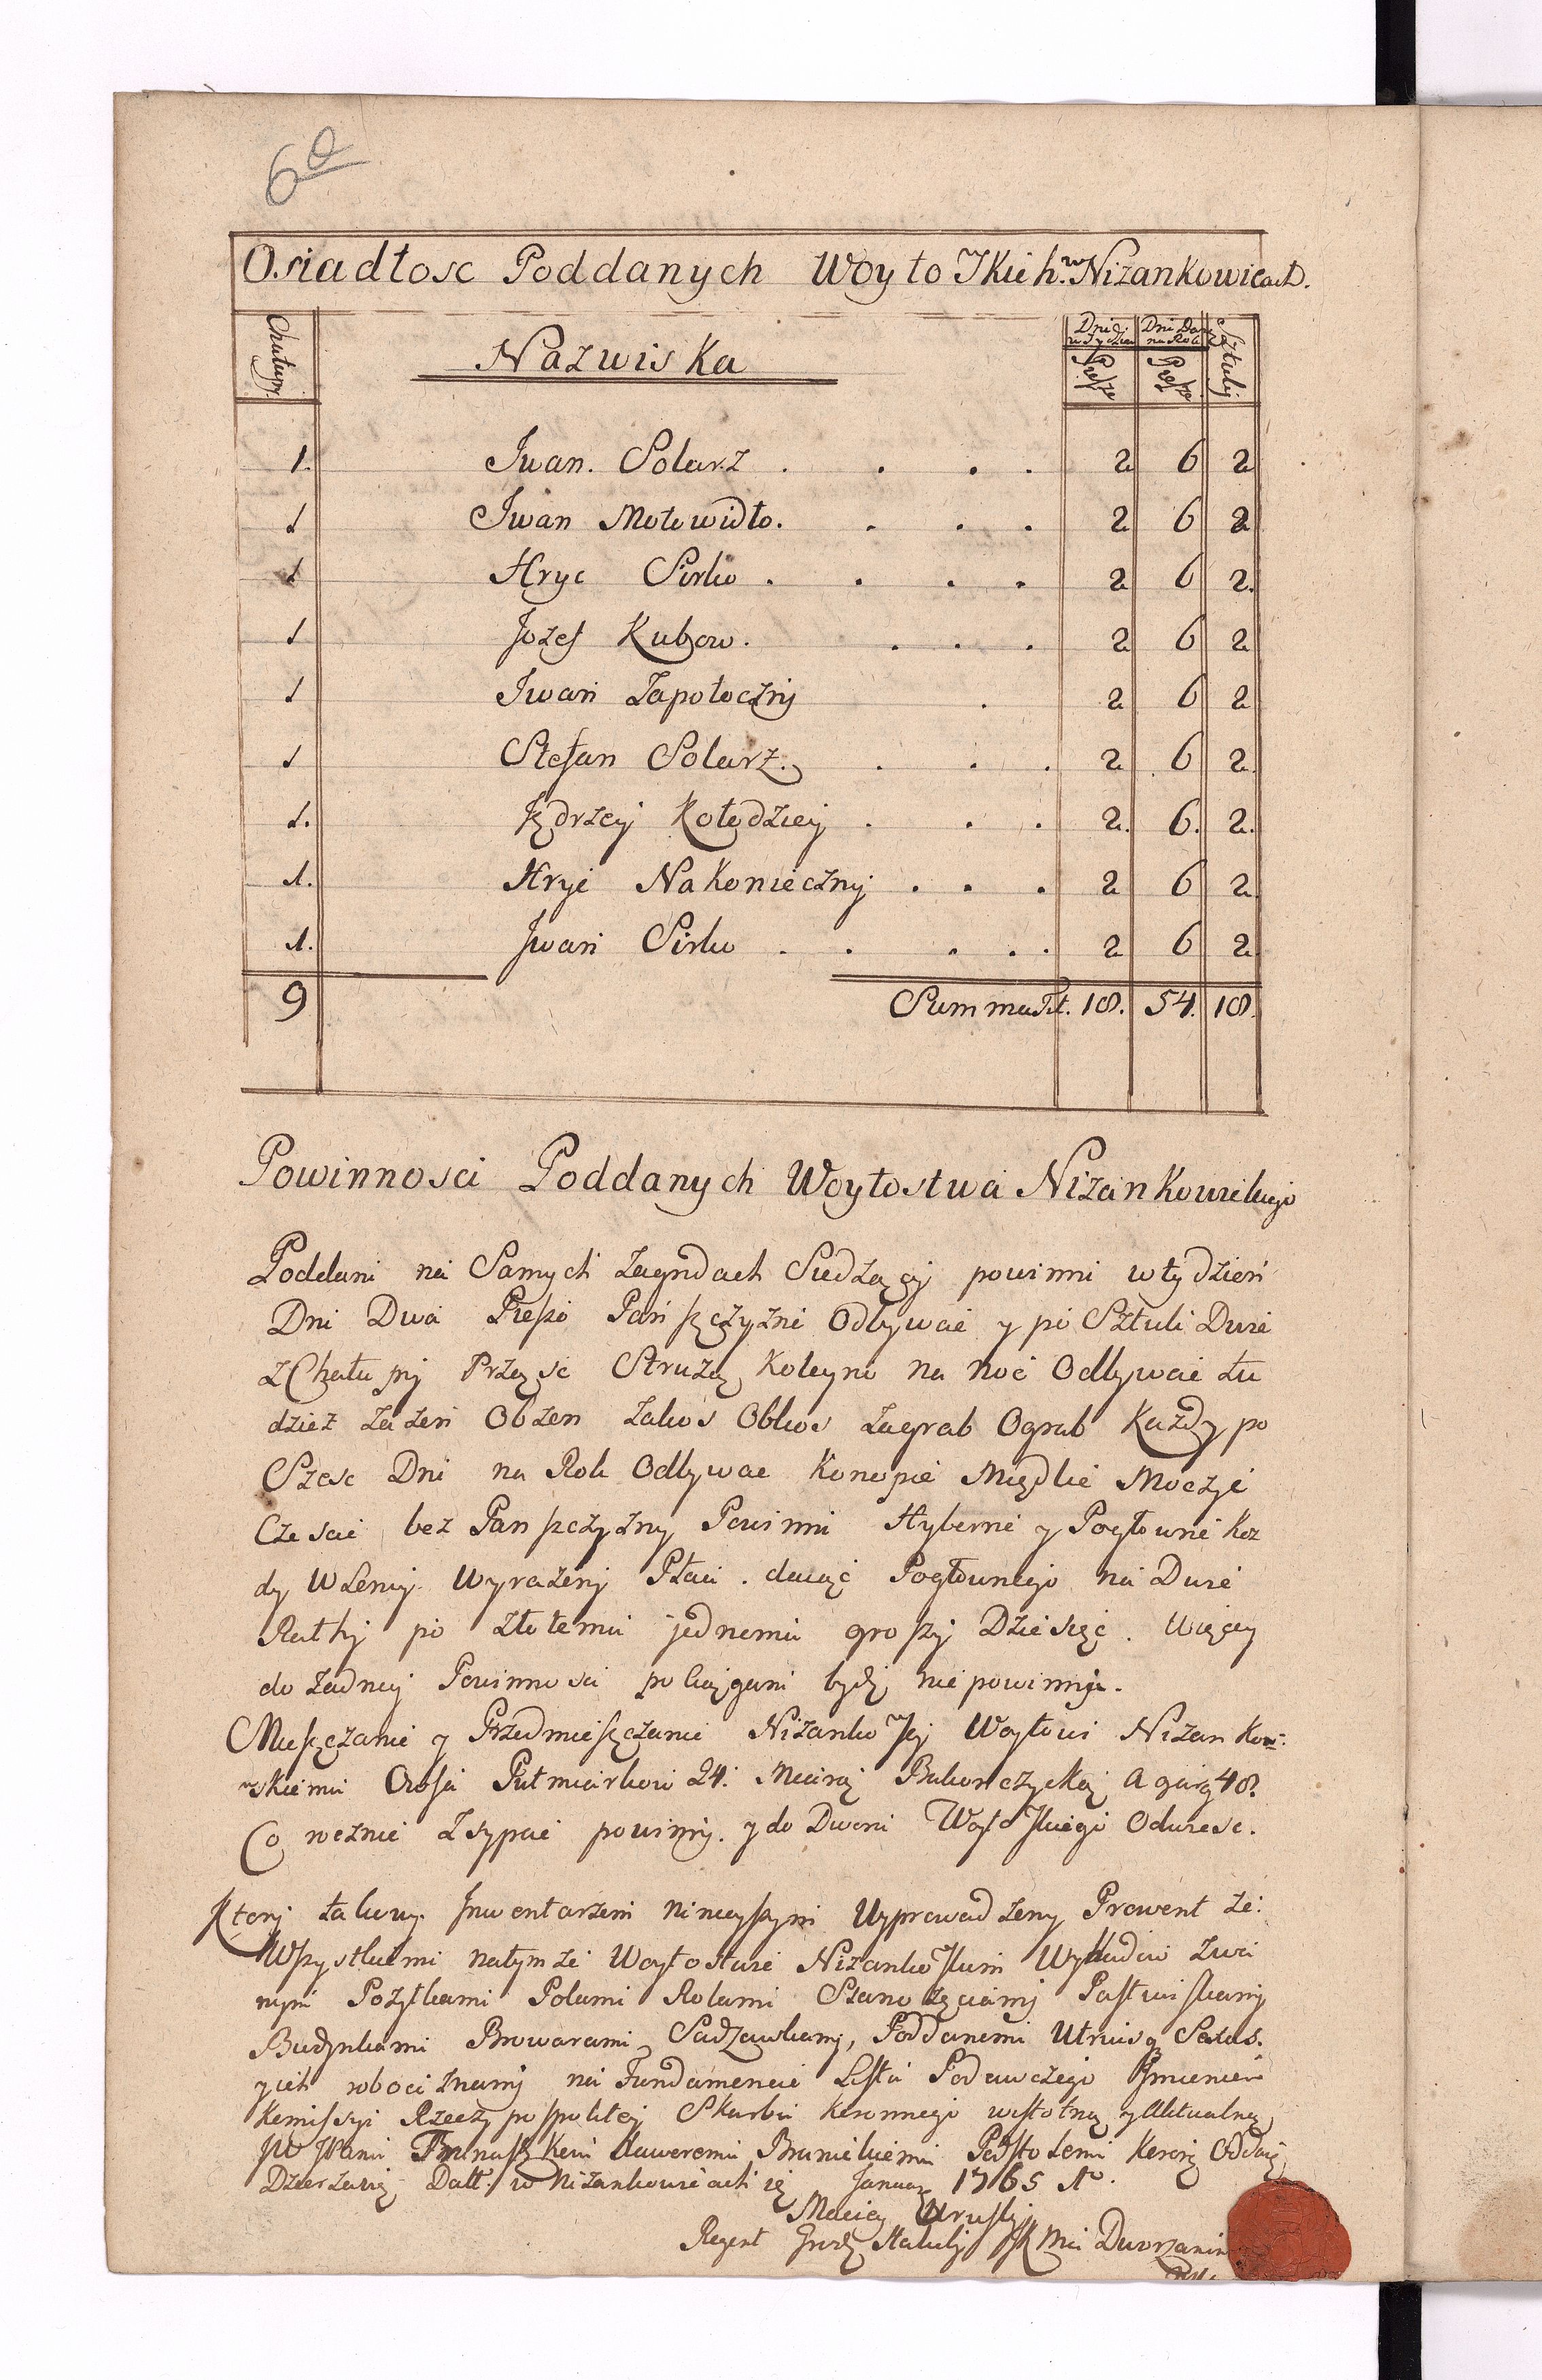 6
Osiadłosc Poddanych Woytoskich w Nizankowicach.
Chałupy. Nazwiska Dnie w Tydzien Piesze Dni Da na Rok Piesze Sztuki
1. Iwan. Solarz . . . . 2 6 2
1 Iwan Motowidło. . . . 2 6 2
1 Hryc Sirko . . . . 2 6 2.
1 Jozef Kubow. . . . 2 6 2
1 Iwan Zapotoczny . 2 6 2
1 Stefan Solarz. . . . 2 6 2
1. Jędrzey Kołodziey . . . 2. 6. 2.
1. Hryć Nakonieczny . . . 2 6 2
1. Iwan Sirko . . . . . 2 6 2
9 Summa 18. 54. 18.
Powinnosci Poddanych Woytostwa Nizankowskiego
Poddani na Samych Zagrodach Siedzący powinni w tydzień
Dni Dwa Piesżo Pańszczyzne Odbywać y po Sztuki Dwie
z Chałupy Prząść Struzą koleyno na noc Odbywać tu
dziez zazen Obzen zakos Obkos zagrab Ograb Kazdy po
Szesc Dni na Rok Odbywac Konopie Międlić Moczyć
Czesać bez Panszczyzny Powinni Hyberne y Pogłowne Koz
dy Wzency Wyrazeny Płaci. dając Pogłownego na Dwie
Ratty po złotemu jednemu groszy Dziesięć. Więcey
do Zadney Powinnosci pociągani bydz nie powinni.
Mieszczanie y Przedmieszczanie Nizankoscy Woytowi Nizankow=
wskiemu Owsa Putmiarkow 24. Miarą Bakonczycką Agarg 48.
Co rocznie Zsypać powinni. y do Dworu Woytoskiego Odwiesc.
Ktory takowy Inwentarzem ninieyszym Wyprowadzony Prowent ze:
Wszystkiemi natymze Woytostwie Nizankoskim
nymi Pozytkami Polami Rolami Sianozęciami Pastwiskamy
Budynkami Browarami, Sadzawkamy, Poddanemi Utriusq Sexus.
y ich roboci znamy na Fundamencie Listu Podawczego Imieniem
Komissyi Rzeczypospolitey Skarbu Koronnego wistotną y Aktualną
Jmnaszkowi Xaweremu Branickiemu Podstolemu Koron Oddaię
Dzierzawę. Datt. w Nizankowicach Januar 1765 Ao.
Maciey Uruski
Regent Grodz Halicki JK Mci Dworzanin